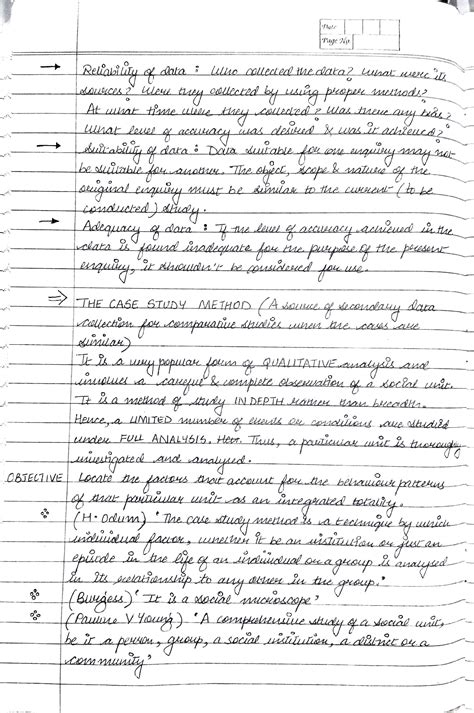 Date
Page No.
→ Reliability of data : Who collected the data? What were its
sources? Were they collected by using proper methods?
At what time where they collected? Was there any bias?
What level of accuracy was desired & was it achieved?
→ Suitability of data : Data suitable for one enquiry may not
be suitable for another. The object, scope & nature of the
original enquiry must be similar to the current (to be
conducted) study.
→ Adequacy of data : If the level of accuracy achieved in the
data is found inadequate for the purpose of the present
enquiry, it shouldn't be considered for use.
⇒ THE CASE STUDY METHOD (A source of secondary data
collection for comparative studies when the cases are
similar)
It is a very popular form of QUALITATIVE analysis and
involves a careful & complete observation of a social unit.
It is a method of study IN DEPTH rather than breadth.
Hence, a LIMITED number of events or conditions are studied
under FULL ANALYSIS. Thus, a particular unit is thoroughly
investigated and analysed.
OBJECTIVE Locate the factors that account for the behaviour patterns
of that particular unit as an integrated totality.
(H. Odum) 'The case study method is a technique by which
individual factor, whether it be an institution or just an
episode in the life of an individual or a group is analysed
in its relationship to any other in the group."
(Burgess) 'It is a social microscope'
(Pauline V Young) 'A comprehensive study of a social unit,
be it a person, group, a social institution, a district or a
community'